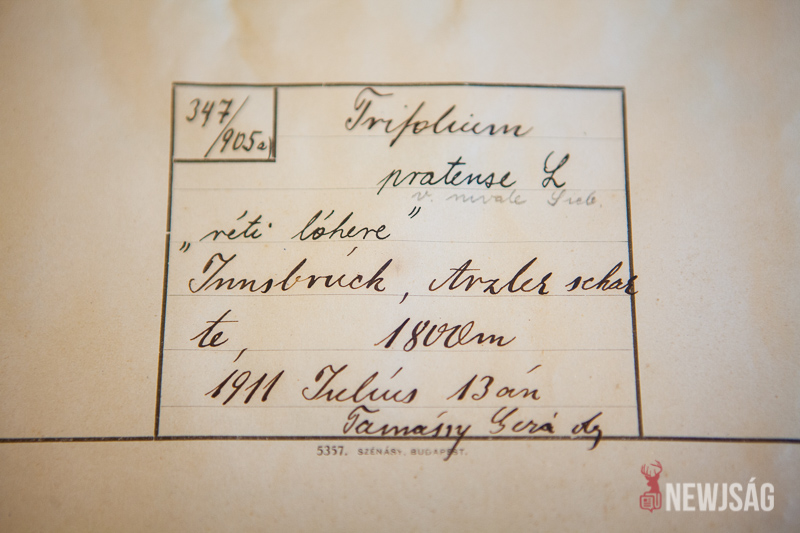 347/
905a)
Trifolium
pratense L
v. nivale Sieb.
„réti lóhere”
Innsbrück, Arzler schar
te, 1800m
1911 Július 13án
Tamássy Gézá
5357. SZÉNÁSY, BUDAPEST.
NEWJSÁG